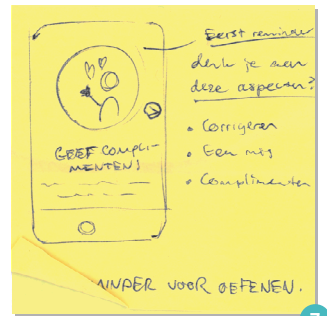 GEEF COMPLI-
MENTEN!
Eerst reminder
denk je aan
deze aspecten?
• Corrigeren
• Een
• Complimenten
VOOR OEFENEN.
7